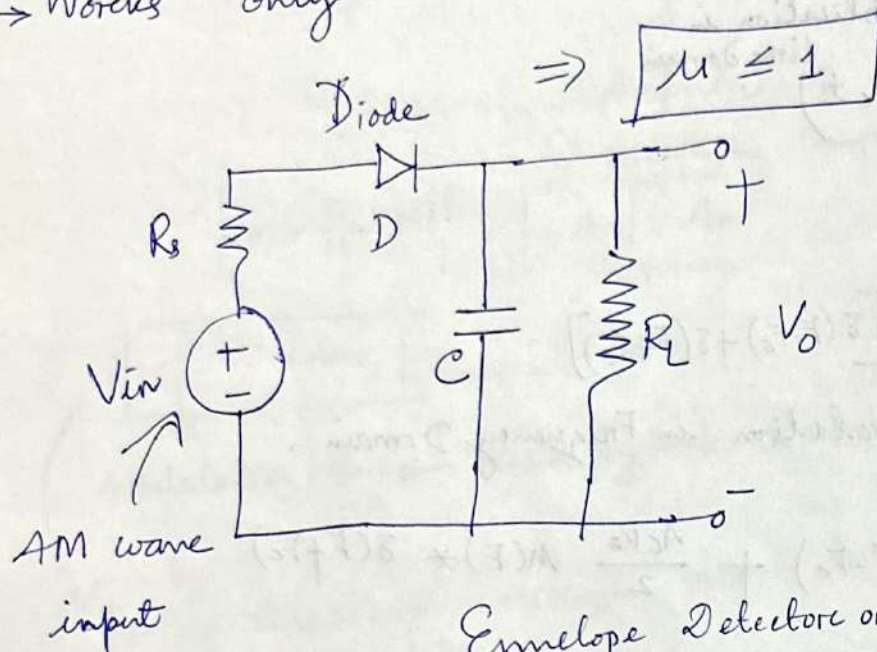 → Works only
⇒ μ ≤ 1
Diode
D
Rs
+
+
-
Vin
C
RL
Vo
-
AM wave
input
Ennelope Detectore